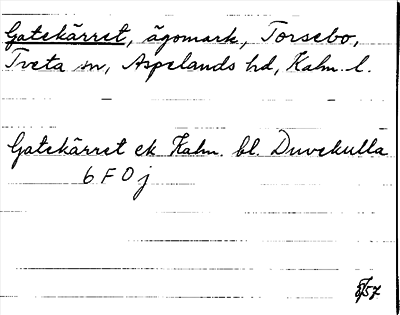 Gatekärret, ägomark, Torsebo,
Tveta sn, Aspelands hd, Kalm. l.
Gatekärret ek Kalm. bl. Duvekulla
6 F 0 j